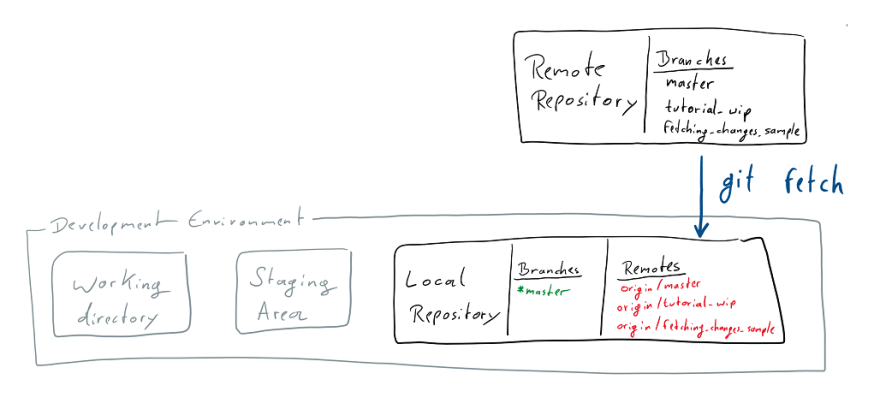 Remote
Repository
Branches
master
tutorial_wip
fetching_changes_sample
git fetch
Development Environment
Working
directory
Staging
Area
Local
Repository
Branches
*master
Remotes
origin/master
origin/tutorial_wip
origin/fetching_changes_sample